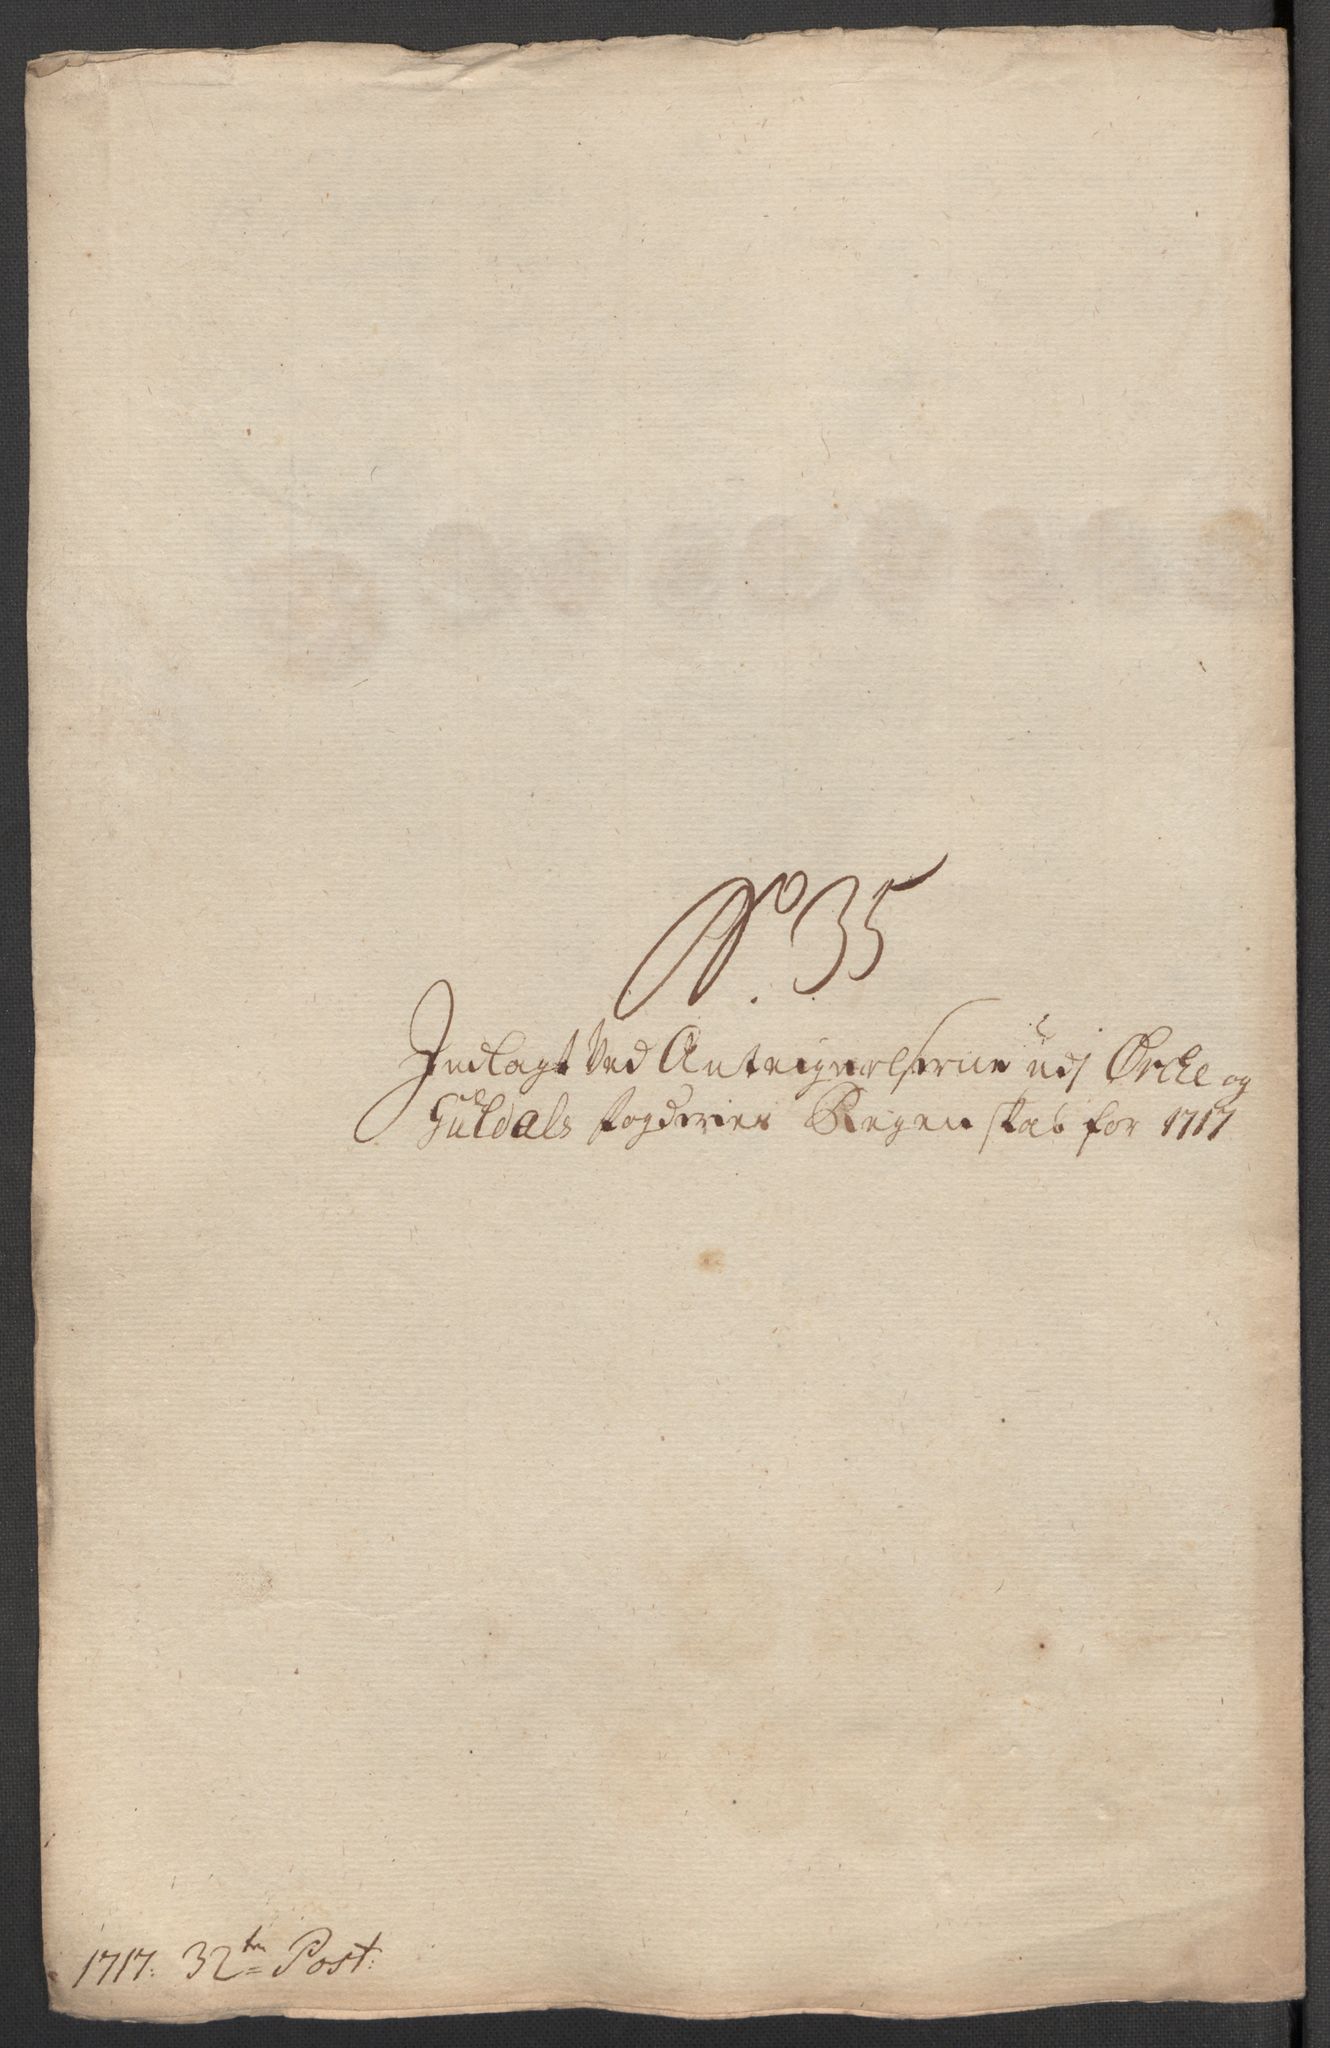 No. 35
Indlagt Ved Anteignelserne udj Ørche og
Guldals fogderies Regenskab for 1717
1717: 32te Post: